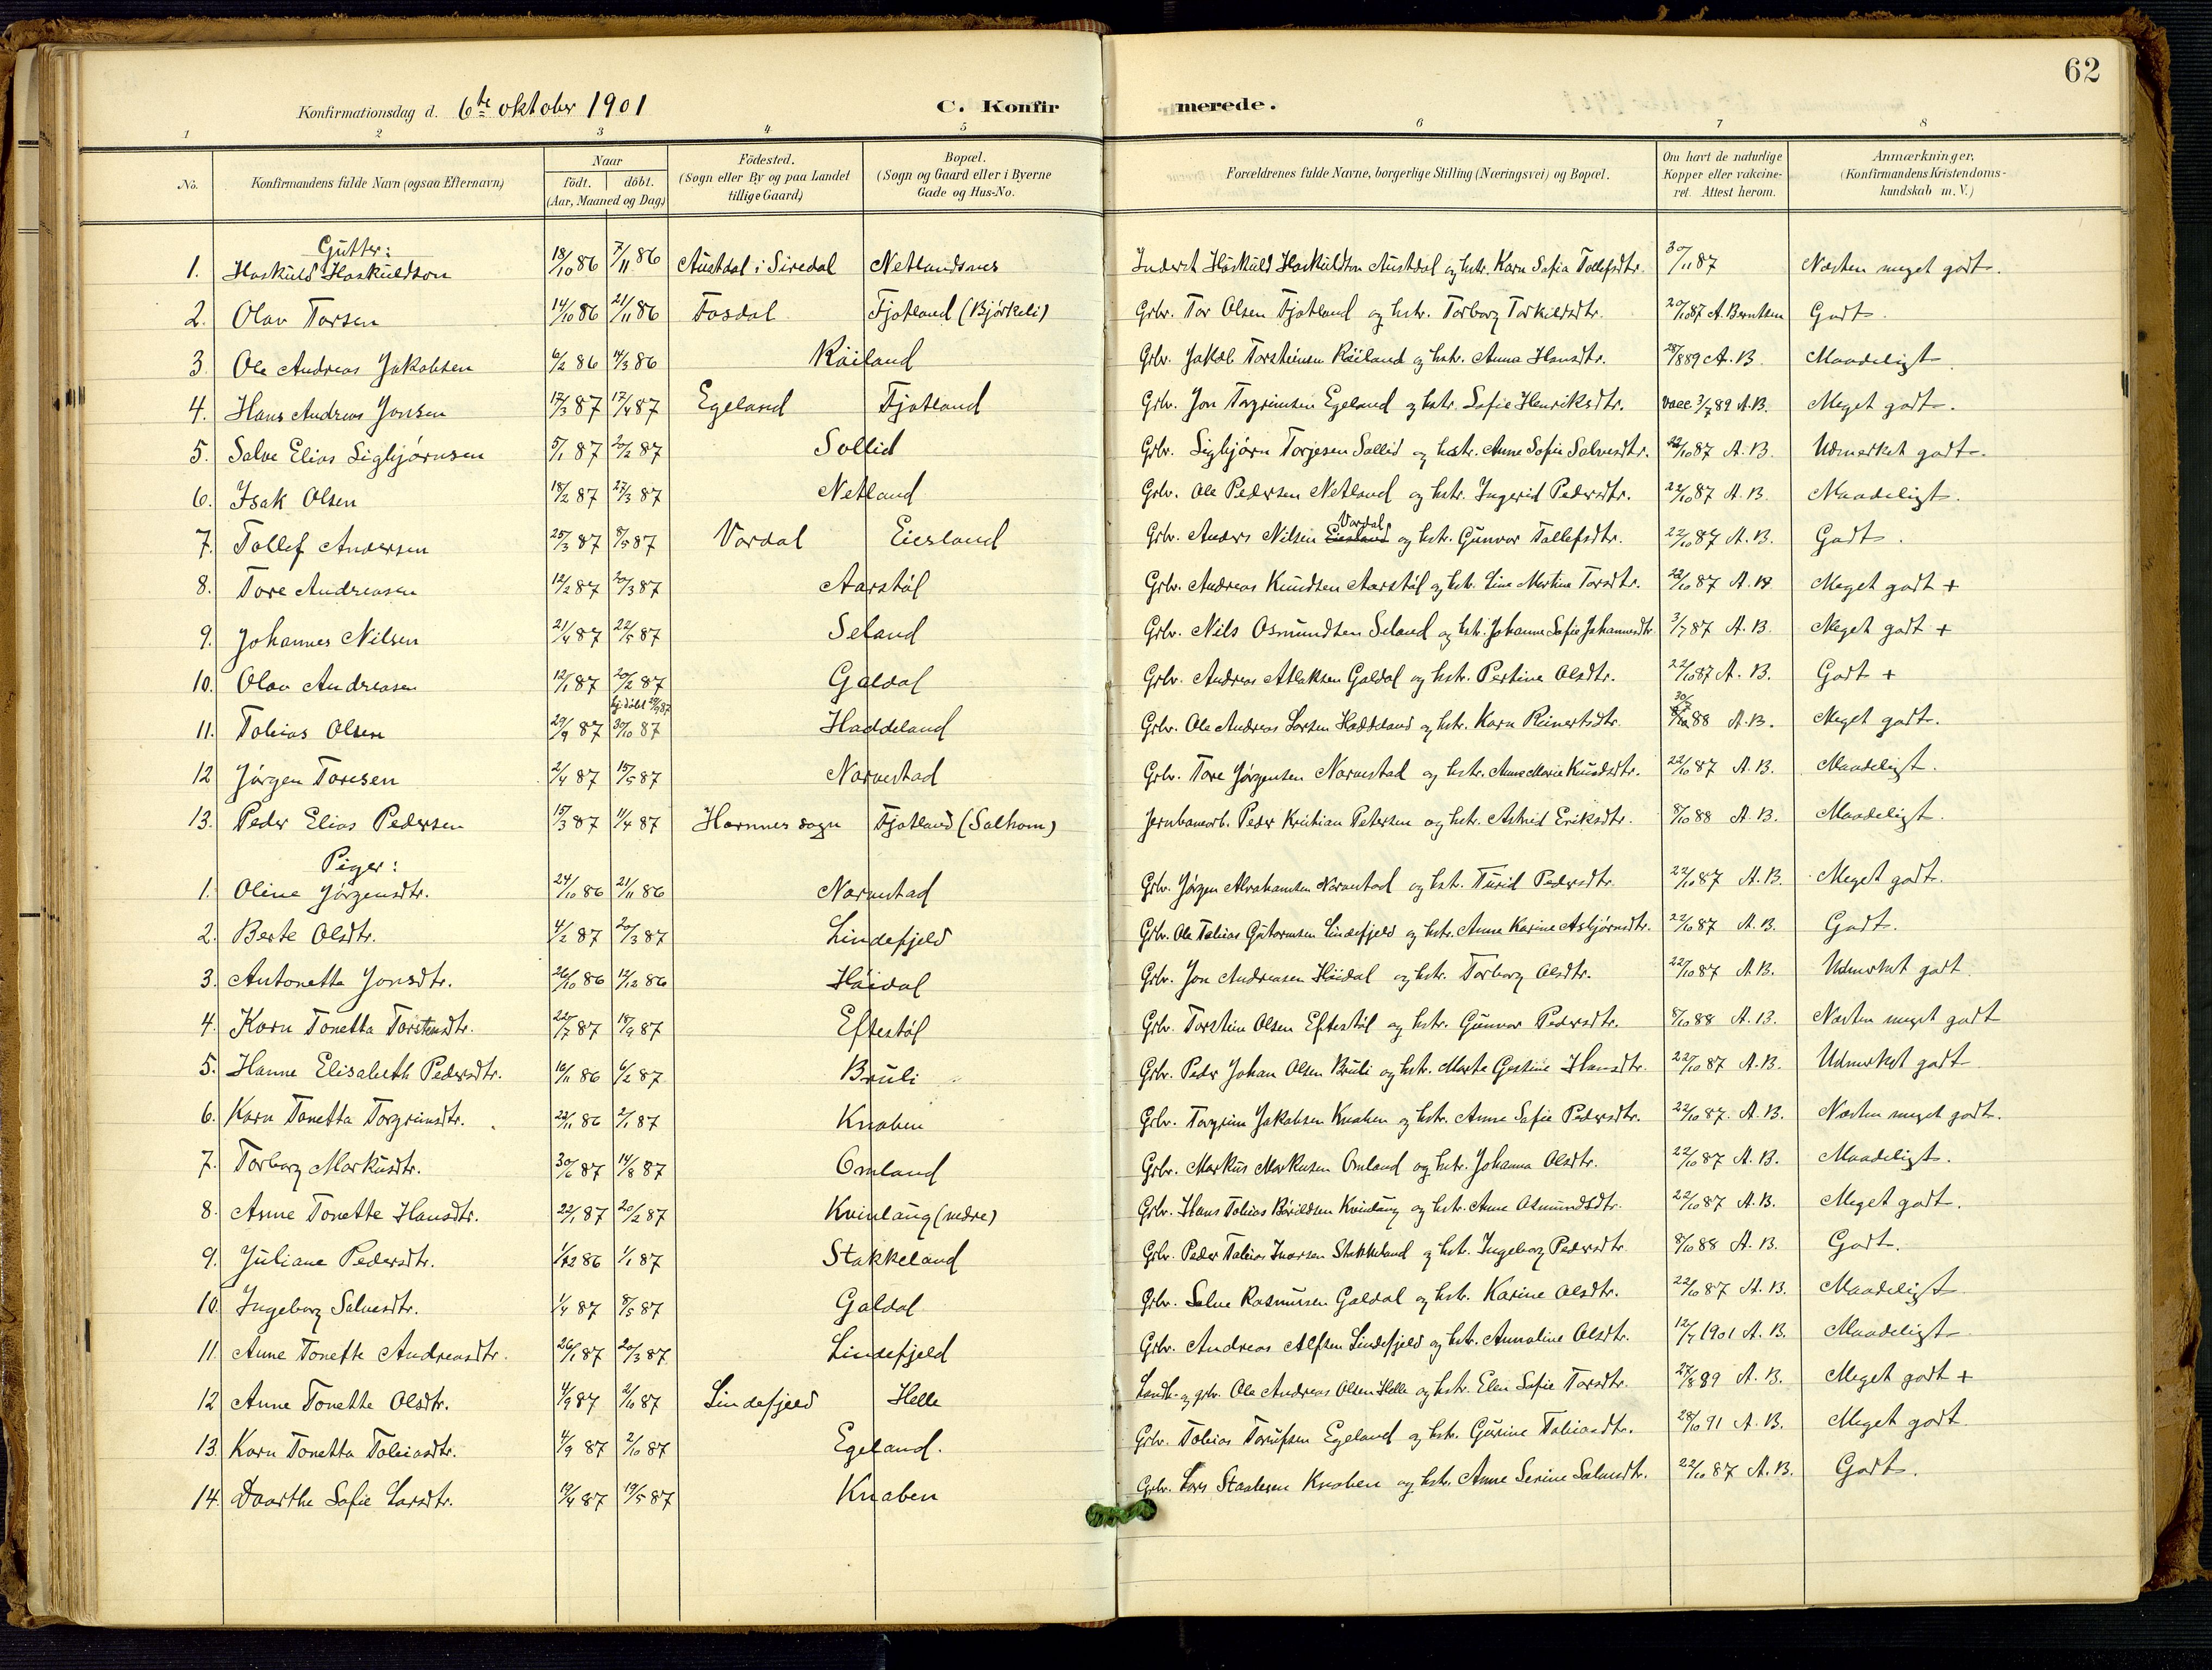 62
Konfirmationsdag d. 6te oktober 1901
C. Konfirmerede.
1 2 3 4 5 6 7 8
No. | Konfirmandens fulde Navn (ogsaa Efternavn) | Naar födt. | döbt. (Aar, Maaned og Dag) | Födested. (Sogn eller By og paa Landet tillige Gaard) | Bopæl. (Sogn og Gaard eller i Byerne Gade og Hus-No. | Forældrenes fulde Navne, borgerlige Stilling (Næringsvei) og Bopæl. | Om havt de naturlige Kopper eller vakcineret. Attest herom. | Anmærkninger. (Konfirmandens Kristendomskundskab m. V.)
Gutter:
1. Haskuld Haskuldson 18/10 86 7/11 86 Austdal i Siredal Netlandsnes Inderst Haskuld Haskuldson Austdal og hstr. Karn Sofia Tollefsdtr. 30/11 87 Næsten meget godt.
2. Olav Torsen 14/10 86 21/11 86 Fosdal Fjotland (Bjørkeli) Grbr. Tor Olsen Fjotland og hstr. Torborg Torkildsdtr. 20/10 87 A. Berntsen Godt.
3. Ole Andreas Jakobsen 6/2 86 14/3 86 Röiland Grbr. Jakob Torsteinsen Röiland og hstr. Anna Hansdtr. 28/8 89 A. B. Maadeligt.
4. Hans Andreas Jonsen 17/3 87 17/4 87 Egeland Fjotland Grbr. Jon Torgrimsen Egeland og hstr. Sofie Henriksdtr. vacc 3/7 89 A. B. Meget godt.
5. Salve Elias Sigbjørnsen 5/1 87 20/2 87 Sollid Grbr. Sigbjørn Torjesen Sollid og hstr. Anne Sofie Salvesdtr. 22/10 87 A. B. Udmerket godt.
6. Isak Olsen 18/2 87 27/3 87 Netland Grbr. Ole Pedersen Netland og hstr. Ingerid Pedersdtr. 22/10 87 A. B. Maadeligt.
7. Tollef Andersen 25/3 87 8/5 87 Vordal Eiesland Grbr. Anders Nilsen Eiesland Vordal og hstr. Gunvor Tollefsdtr. 22/10 87 A. B. Godt.
8. Tore Andreasen 12/2 87 20/3 87 Aarstöl Grbr. Andreas Knudsen Aarstöl og hstr. Sine Martine Torsdtr. 22/10 87 A. B. Meget godt +
9. Johannes Nilsen 21/4 87 22/5 87 Seland Grbr. Nils Osmundsen Seland og hstr. Johanne Sofie Johannesdtr. 3/7 87 A. B. Meget godt +
10. Olav Andreasen 12/1 87 20/2 87 Galdal Grbr. Andreas Atlaksen Galdal og hstr. Pertine Olsdtr. 22/10 87 A. B. Godt +
11. Tobias Olsen 29/9 87 hj. döbt 29/9 87 30/10 87 Haddeland Grbr. Ole Andreas Larsen Haddeland og hstr. Karn Reinertsdtr. 88 A. B. Meget godt.
12 Jörgen Toresen 2/4 87 15/5 87 Narvestad Grbr. Tore Jørgensen Narvestad og hstr. Anne Marie Knudsdtr. 22/10 87 A. B. Maadeligt.
13. Peder Elias Pedersen 15/3 87 11/4 87 Hornnes sogn Fjotland (Salhom) Jernbanearb. Peder Kristian Petersen og hstr. Astrid Eriksdtr. 8/10 88 A. B. Maadeligt.
Piger:
1. Oline Jörgensdtr. 24/10 86 21/11 86 Narvestad Grbr. Jörgen Abrahamsen Narvestad og hst. Turid Pedersdtr. 22/10 87 A. B. Meget godt.
2. Berte Olsdtr. 4/2 87 20/3 87 Lindefjeld Grbr. Ole Tobias Gutormsen Lindefjeld og hstr. Anne Karine Asbjørnsdtr. 22/10 87 A. B. Godt.
3. Antonetta Jonsdtr. 26/10 86 12/12 86 Höidal Grbr. Jon Andreasen Höidal og hstr. Torborg Olsdtr. 22/10 87 A. B. Udmerket godt
4. Karn Tonetta Torstensdtr. 22/7 87 18/9 87 Eftestöl Grbr. Torstein Olsen Eftestöl og hstr. Gunvor Pedersdtr. 8/10 88 A. B. Næsten meget godt
5. Hanne Elisabeth Pedersdtr. 16/11 86 6/2 87 Bruli Grbr. Peder Johan Olsen Bruli og hstr. Marte Gustine Hansdtr. 22/10 87 A. B. Udmerket godt
6. Karn Tonetta Torgrimsdtr. 22/11 86 2/1 87 Knaben Grbr. Torgrim Jakobsen Knaben og hstr. Anne Sofie Pedersdtr. 22/10 87. A. B. Næsten meget godt.
7. Torborg Markusdtr. 30/6 87 14/8 87 Omland Grbr. Markus Markusen Omland og hstr. Johanna Olsdtr. 22/10 87 A. B. Maadeligt.
8. Anne Tonette Hansdtr. 22/1 87 20/2 87 Kvinlaug (nedre) Grbr. Hans Tobias Bövildsen Kvinlaug og hstr. Anne Osmundsdtr. 22/10 87 A. B. Meget godt.
9. Juliane Pedersdtr. 1/12 86 1/1 87 Stakkeland Grbr. Peder Tobias Ivarsen Stakkeland og hst. Ingeborg Pedersdtr. 8/10 88 A. B. Godt.
10. Ingeborg Salvesdtr. 1/4 87 8/5 87 Galdal Grbr. Salve Rasmusen Galdal og hstr. Karine Olsdtr. 22/10 87 A. B. Maadeligt
11. Anne Tonette Andreasdtr. 26/1 87 20/3 87 Lindefjeld Grbr. Andreas Alfsen Lindefjeld og hstr. Annoline Olsdtr. 12/7 1901 A. B. Maadeligt
12 Anne Tonette Olsdtr. 4/9 87 2/10 87 Lindefjeld Helle Landh. og grbr. Ole Andreas Olsen Helle og hstr. Elen Sofie Torsdtr. 27/8 89 A. B. Meget godt +
13. Karn Tonetta Tobiasdtr. 4/9 87 2/10 87 Egeland. Grbr. Tobias Torrufsen Egeland og hstr. Gurine Tobiasdtr. 28/10 91 A. B. Meget godt
14. Daarthe Sofie Larsdtr. 19/4 87 19/5 87 Knaben Grbr. Lars Staalesen Knaben og hstr. Anne Serine Salvesdtr. 22/10 87 A. B. Godt.